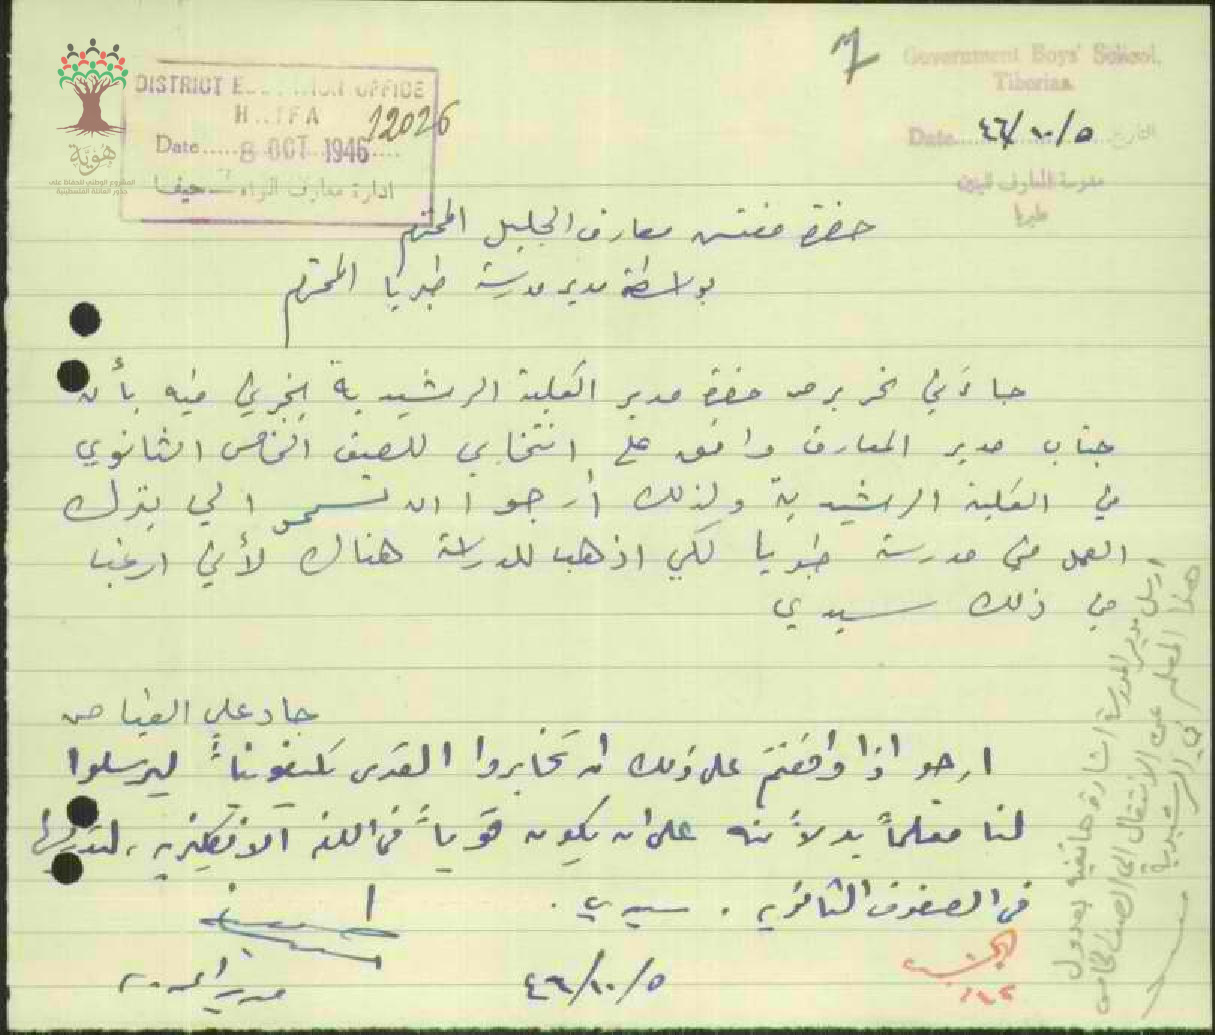 Government Boys' School,
Tiberias.
Date.......... ٤٦/١٠/٥ ..........التاريخ
مدرسة المعارف للبنين
طبريا
DISTRICT E... OFFICE
H..IFA
12026
Date ..... 8 OCT 1946 ....
ادارة معارف اللواء – حيفا
هوية
المشروع الوطني للحفاظ على
جذور العائلة الفلسطينية
حضرة مفتش معارف الجليل المحترم
بواسطة مدير مدرسة طبريا المحترم
جاءني تحرير من حضرة مدير الكلية الرشيدية يخبرني فيه بأن
جناب مدير المعارف وافق على انتخابي للصف الخامس الثانوي
في الكلية الرشيدية ولذلك أرجو ان تسمحوا لي بترك
العمل في مدرسة طبريا لكي اذهب للدراسة هناك لأني ارغب
في ذلك سيدي
جاد علي
ارجو اذا وافقتم على ذلك ان تخابروا القدس تلفونياً ليرسلوا
لنا معلماً بدلاً منه على ان يكون قوياً في اللغة الانكليزية، لتدريسها
في الصفوف الثانوية . سيدي .
مدير المدرسة
٤٦/١٠/٥
ارسل مدير المدرسة اشارة هاتفية بعدول
هذا المعلم عن الانتقال الى الصف الخامس
في الرشيدية